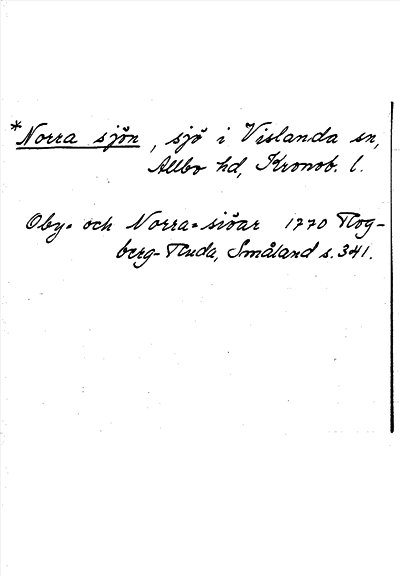 *Norra sjön, sjö i Vislanda sn,
Allbo hd, Kronob. l.
Oby= och Norra=siöar 1770 Rog-
berg-Ruda, Småland s. 341.